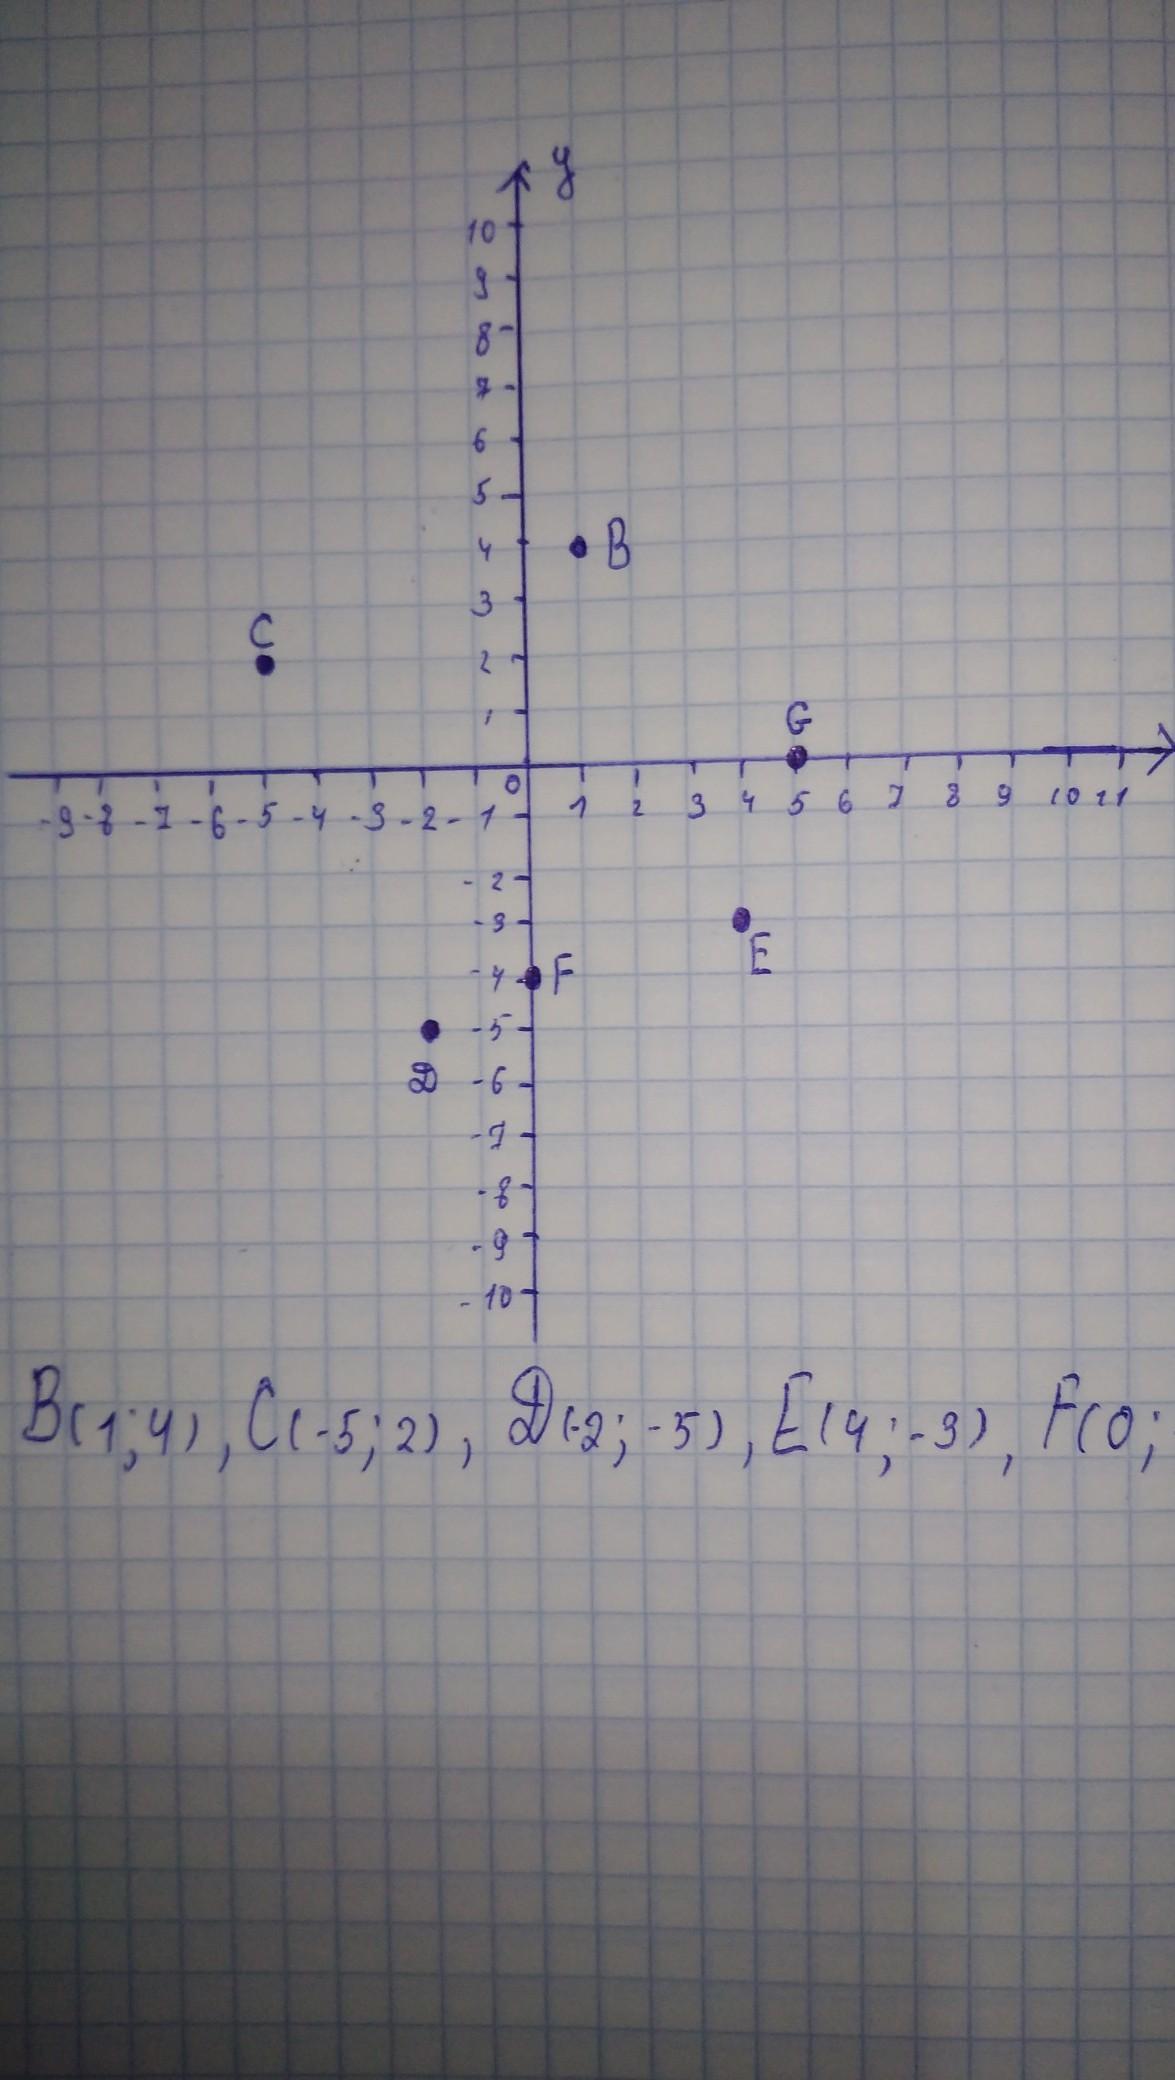 y
10
9
8
7
6
5
4 B
3
C
2
1
G
0
-9 -8 -7 -6 -5 -4 -3 -2 -1 1 2 3 4 5 6 7 8 9 10 11
-2
-3
E
-4 F
-5
D -6
-7
-8
-9
-10
B(1;4), C(-5;2), D(-2;-5), E(4;-3), F(0;